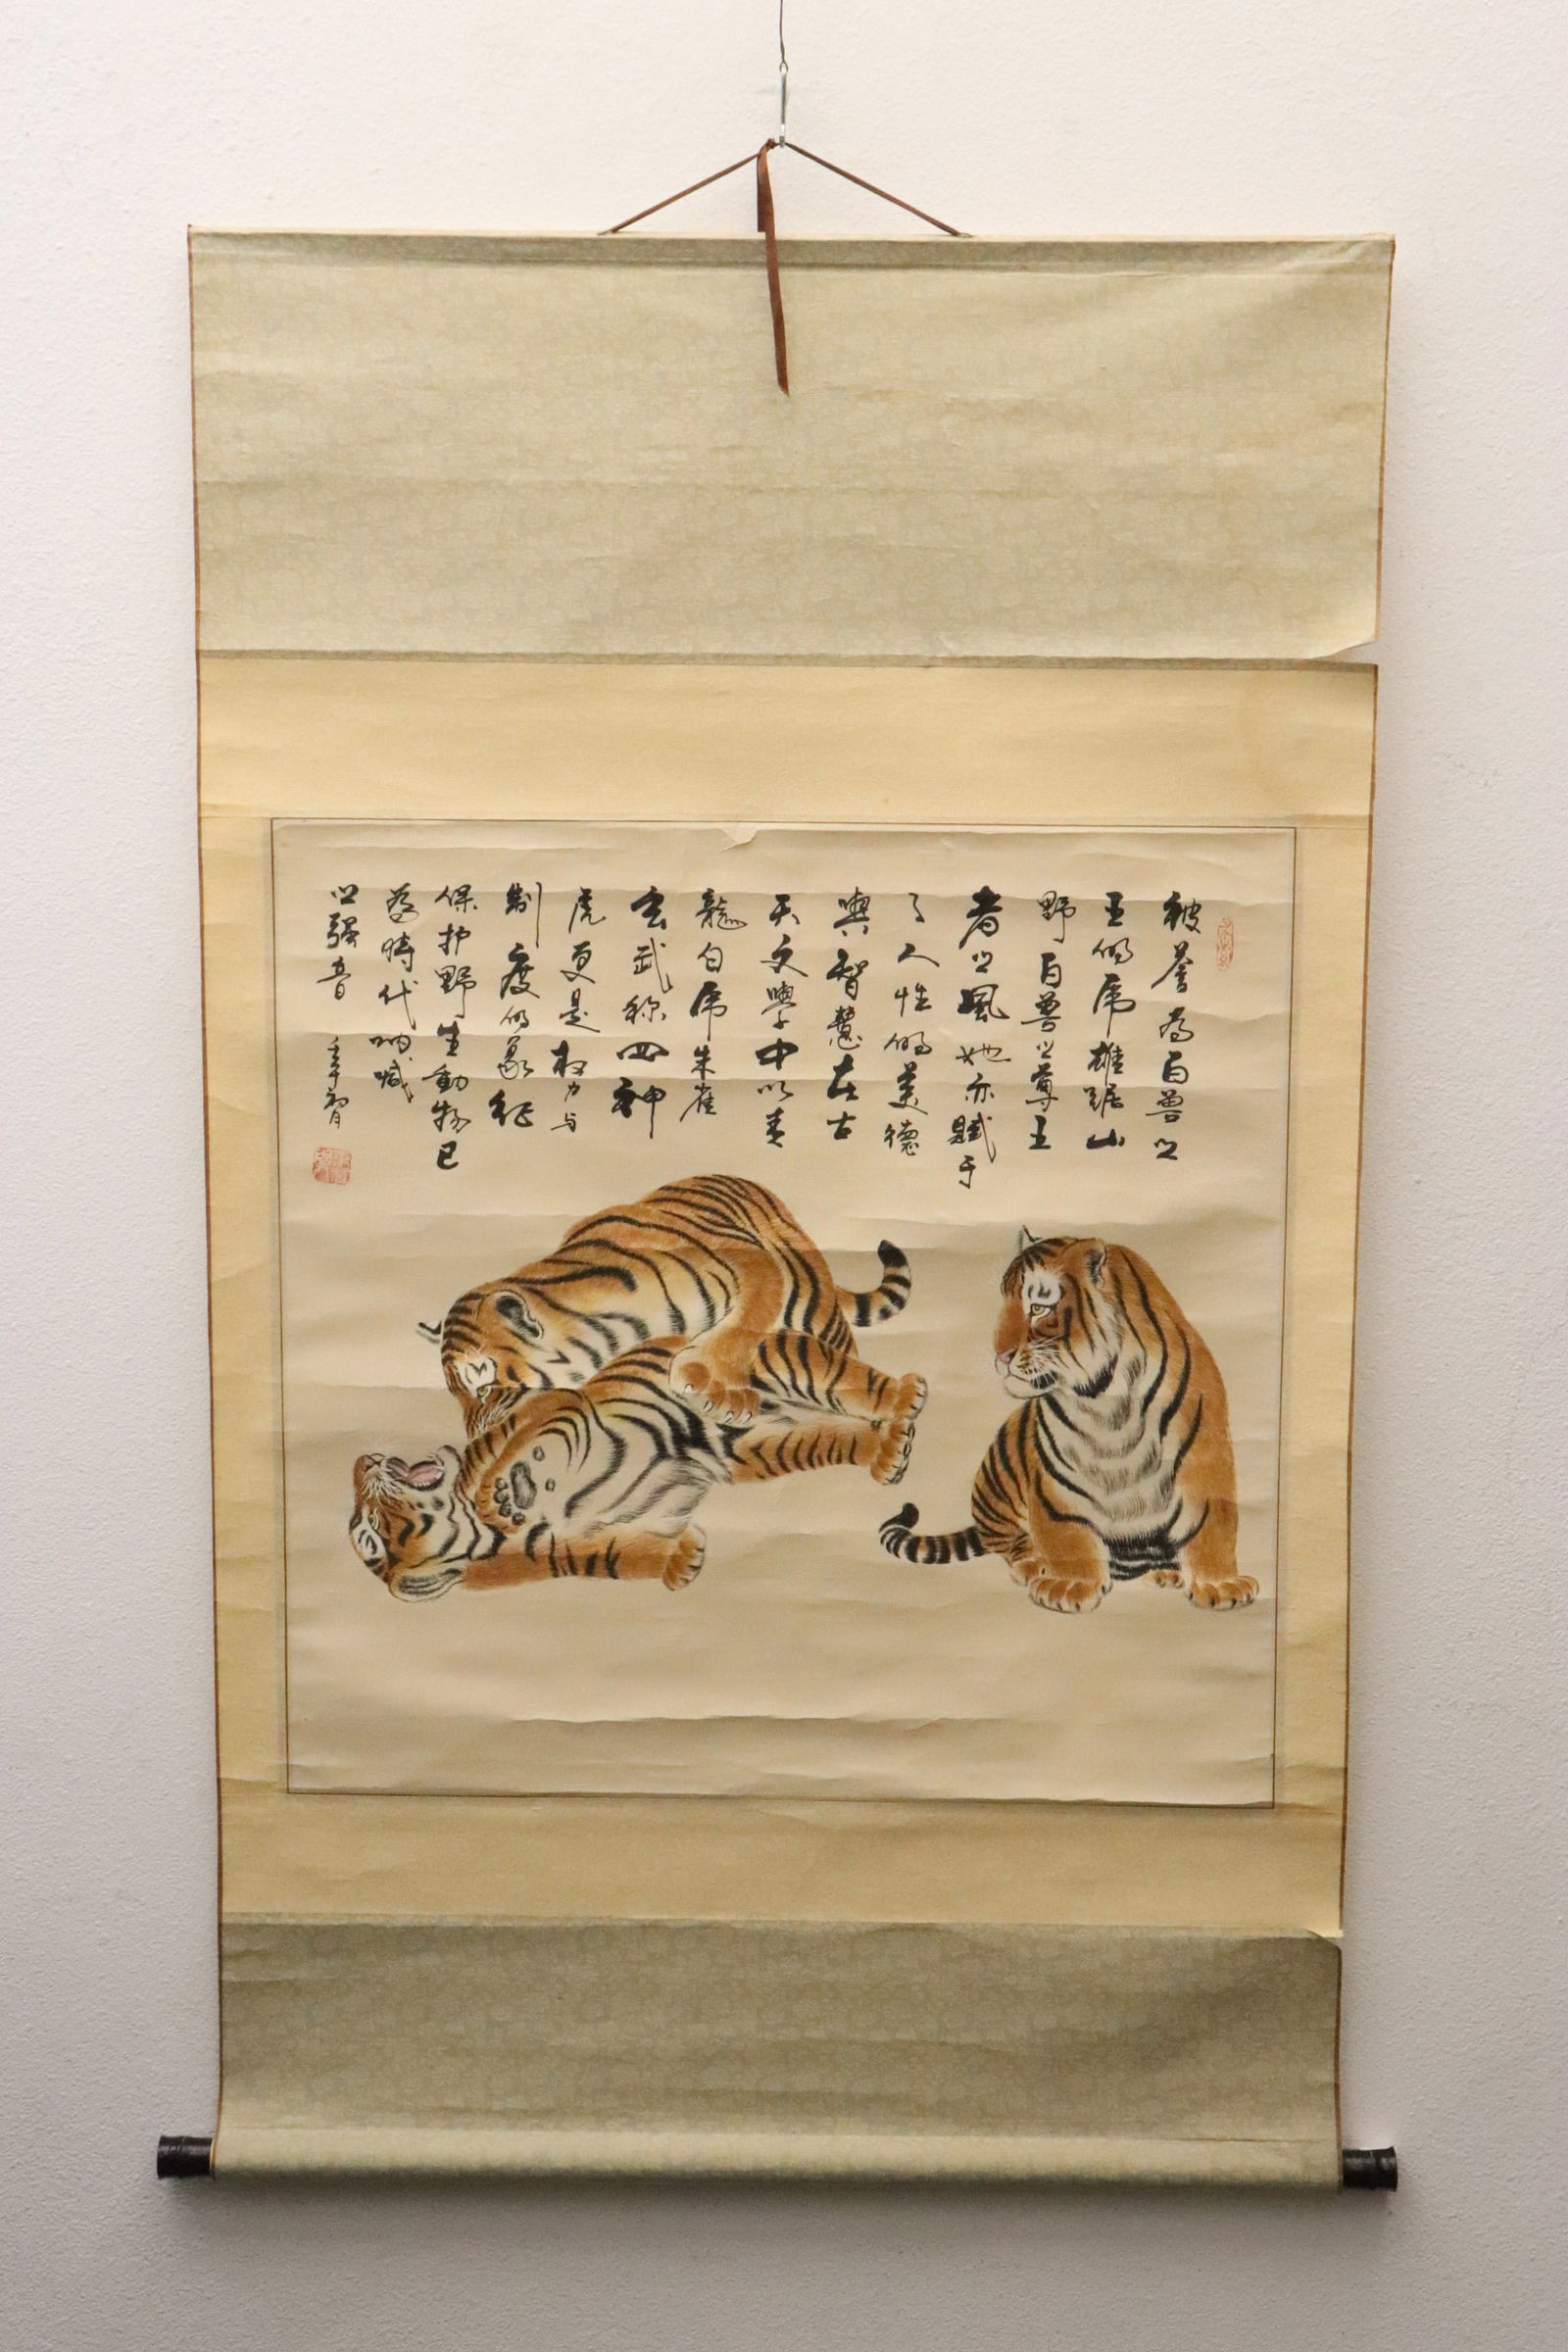 被誉為百兽之
王的虎雄踞山
野百兽之尊王
者之風她亦赋于
了人性的美德
與智慧在古
天文學中以青
龍白虎朱雀
玄武称四神
虎更是权力与
制度的象征
保护野生動物已
為時代呐喊
之强音